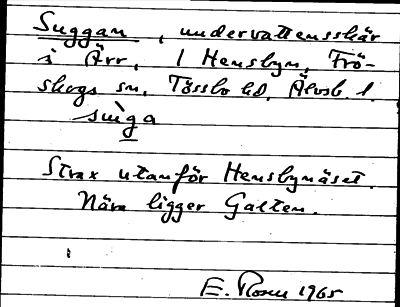 Suggan, undervattensskär
i Ärr, 1 Hensbyn, Frö-
skogs sn, Tössbo hd, Älvsb. l.
sùga
Strax utanför Hensbynäset.
Nära ligger Galten.
E. Rosén 1965